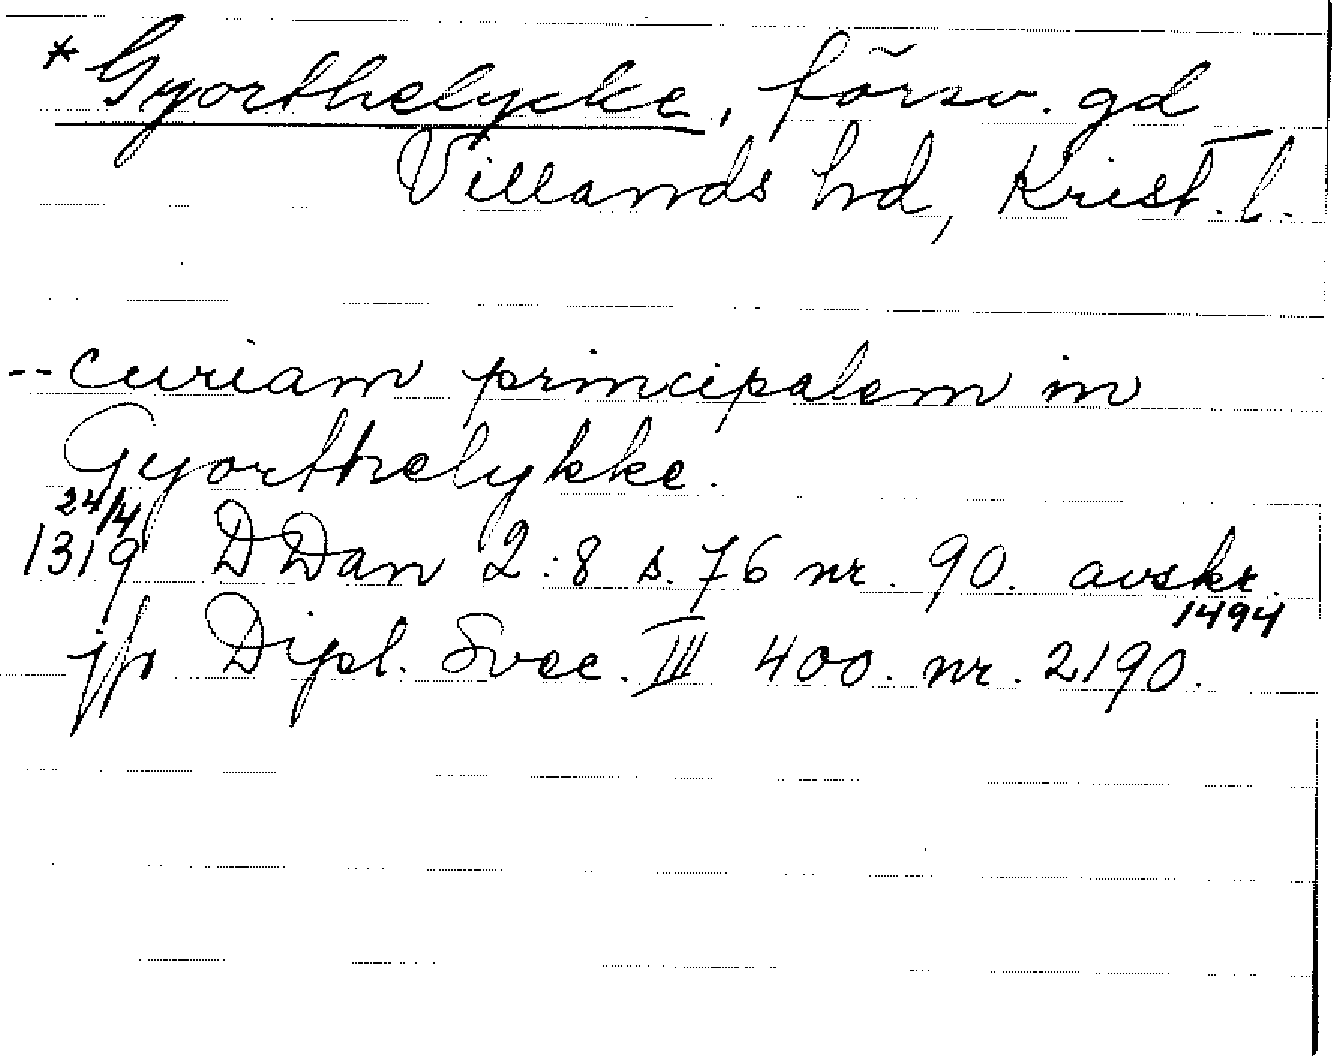 * Gyorthelycke, försv. gd
Villands hd, Krist. l.
-- curiam principalem in
Gyorthelykke.
24/4
1319 DDan 2:8 s. 76 nr. 90. avskr.
1494
jfr Dipl. Svec. III 400. nr. 2190.